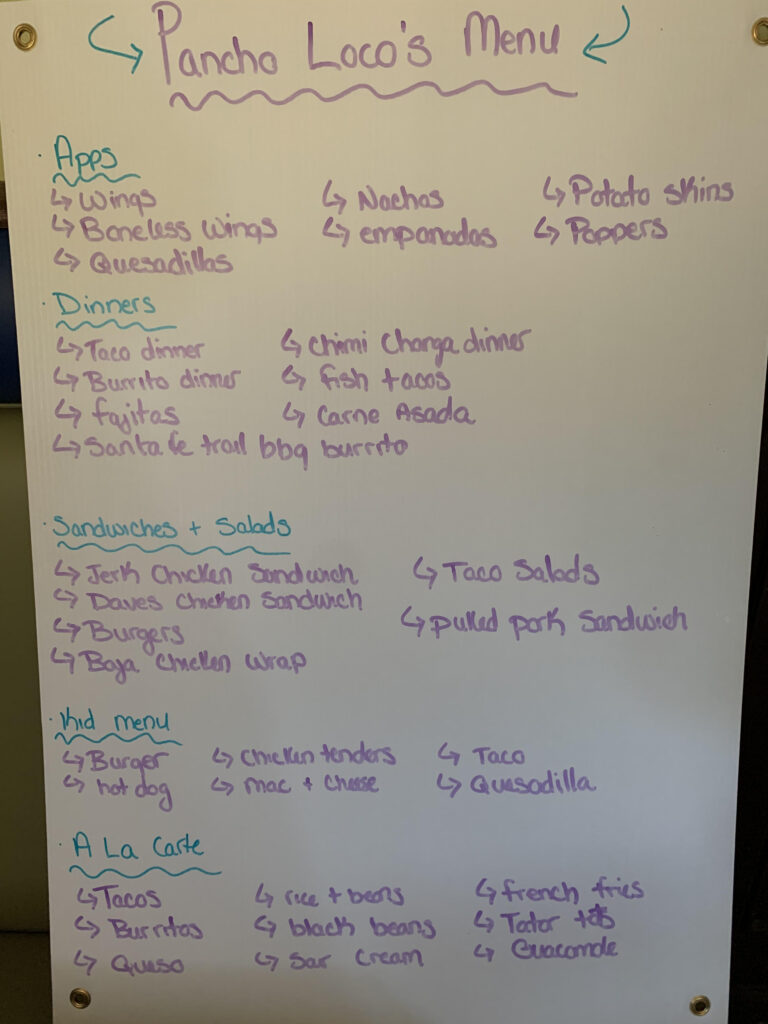 Pancho Loco's Menu
Apps
Wings
Boneless Wings
Quesadillas
Nachos
empanadas
Potato skins
Poppers
Dinners
Taco dinner
Burrito dinner
fajitas
Santa fe trail bbq burrito
Chimi Changa dinner
fish tacos
Carne Asada
Sandwiches + Salads
Jerk Chicken Sandwich
Daves Chicken Sandwich
Burgers
Baja Chicken Wrap
Taco Salads
pulled pork Sandwich
Kid menu
Burger
hot dog
Chicken tenders
Mac + Cheese
Taco
Quesadilla
A La Carte
Tacos
Burritos
Queso
rice + beans
black beans
Sar Cream
french fries
Tator tots
Guacomole